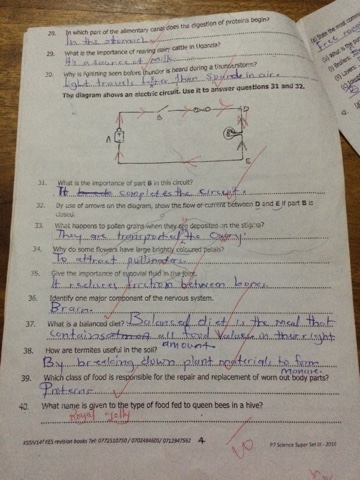 28. In which part of the alimentary canal does the digestion of proteins begin?
In the stomach
29. What is the importance of rearing dairy cattle in Uganda?
It's a source of milk.
30. Why is lightning seen before thunder is heard during a thunderstorm?
Light travels faster than sound in air.
The diagram shows an electric circuit. Use it to answer questions 31 and 32.
A
B
D
E
31. What is the importance of part B in this circuit?
It completes the circuit.
32. By use of arrows on the diagram, show the flow of current between D and E if part B is
closed.
33. What happens to pollen grains when they are deposited on the stigma?
They are transported to the ovary.
34. Why do some flowers have large brightly coloured petals?
To attract pollinators.
35. Give the importance of synovial fluid in the joint.
It reduces friction between bones.
36. Identify one major component of the nervous system.
Brain.
37. What is a balanced diet? Balanced diet is the meal that
contains all food values in their right
amounts
38. How are termites useful in the soil?
By breaking down plant materials to form
manure.
39. Which class of food is responsible for the repair and replacement of worn out body parts?
Proteins
40. What name is given to the type of food fed to queen bees in a hive?
Royal Jelly
4
P7 Science Super Set III - 2016
10